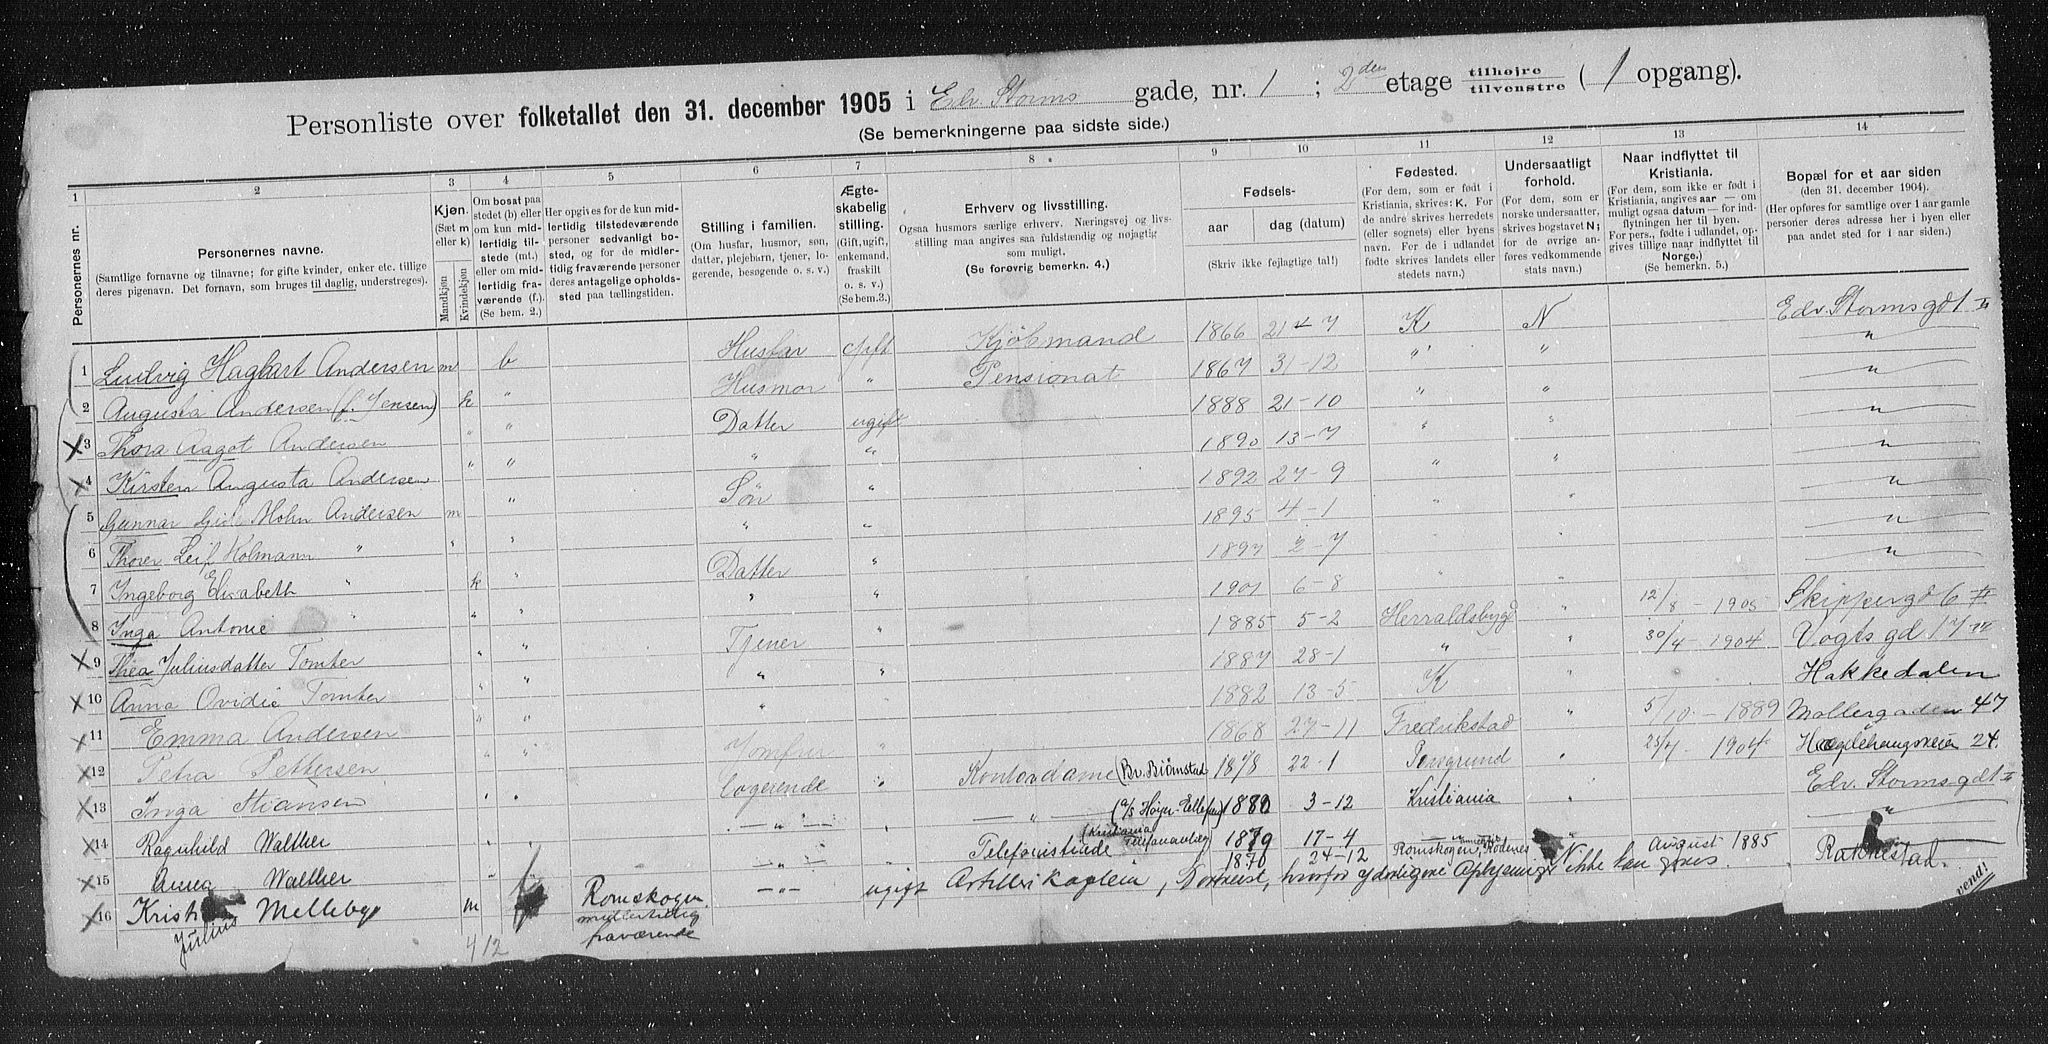 Personliste over folketallet den 31. december 1905 i Edv. Storms gade, nr. 1 ; 2den etage tilhøjre tilvenstre ( 1 opgang).
(Se bemerkningerne paa sidste side.)
1 2 3 4 5 6 7 8 9 10 11 12 13 14
Personernes nr.
Personernes navne.
(Samtlige fornavne og tilnavne; for gifte kvinder, enker etc. tillige
deres pigenavn. Det fornavn, som bruges til daglig, understreges).
Kjøn.
(Sæt m
eller k)
Mandkjøn
Kvindekjøn
Om bosat paa
stedet (b) eller
om kun mid-
lertidig til-
stede (mt.)
eller om mid-
lertidig fra-
værende (f.).
(Se bem. 2.)
Her opgives for de kun mid-
lertidig tilstedeværende
personer sedvanligt bo-
sted, og for de midler-
tidig fraværende personer
deres antagelige opholds-
sted paa tællingstiden.
Stilling i familien.
(Om husfar, husmor, søn,
datter, plejebarn, tjener, lo-
gerende, besøgende o. s. v.)
Ægte-
skabelig
stilling.
(Gift, ugift,
enkemand,
fraskilt
o. s. v.)
(Se bem. 3.)
Erhverv og livsstilling.
Ogsaa husmors særlige erhverv. Næringsvej og livs-
stilling maa angives saa fuldstændig og nøjagtig
som muligt.
(Se forøvrig bemerkn. 4.)
Fødsels-
aar
dag (datum)
(Skriv ikke fejlagtige tal!)
Fødested.
(For dem, som er født i
Kristiania, skrives: K. For
de andre skrives herredets
(eller sognets) eller byens
navn. For de i udlandet
fødte skrives landets eller
stedets navn.)
Undersaatligt
forhold.
(For dem, som er
norske undersaatter,
skrives bogstavet N;
for de øvrige an-
føres vedkommende
stats navn.)
Naar indflyttet til
Kristiania.
(For dem, som ikke er født i
Kristiania, angives aar — om
muligt ogsaa datum — for ind-
flytningen her til byen.
For pers., fødte i udlandet, op-
gives tillige naar indflyttet til
Norge.)
(Se bemerkn. 5.)
Bopæl for et aar siden
(den 31. december 1904).
(Her opføres for samtlige over 1 aar gamle
personer deres adresse her i byen eller
paa andet sted for 1 aar siden.)
1 Ludvig Hagbart Andersen m b Husfar gift Kjøbmand 1866 21-7 K N Edv. Stormsgd 1 II
2 Augusta Andersen (f. Jensen) k " Husmor " Pensionat 1867 31-12 " " "
3 Thora Aagot Andersen " " Datter ugift 1888 21-10 " " "
4 Kirsten Augusta Andersen " " " " 1890 13-7 " " "
5 Gunnar Mohn Andersen m " Søn " 1892 27-9 " " "
6 Thorer Leif Holmann " " " " " 1895 4-1 " " "
7 Ingeborg Elisabeth " k " Datter " 1897 2-7 "
8 Inga Antonie " " " " 1901 6-8 " "
9 Thea Juliusdatter Tomter " " Tjener " 1885 5-2 Herraldsbygd " 12/8 - 1905 Skippergd 6 II
10 Anna Ovidie Tomter " " " " 1887 28-1 " " 30/4 - 1904 Vogts gd 17 IV
11 Emma Andersen " " " 1882 13-5 K " Hakkedalen
12 Petra Pettersen " " Jomfru " 1868 27-11 Fredrikstad " 5/10 - 1889 Møllergaden 47
13 Inga Stiansen " " Logerende " Kontordame (Br. Biørnstad 1878 22-1 Porsgrund " 25/7 - 1904 24.
14 Ragnhild Walther " " — " — — " — (A/S Høyer-Ellefsen) 1880 3-12 Kristiania " Edv. Stormsgd 1 II
15 Anna Walther " — " — Telefonistinde (Kristiania Telefonanlæg) 1879 17-4 — " — " "
16 Kristian Julius Melleby m f Romskogen midlertidig fraværende — " — ugift Artillerikaptein, 1870 24-12 Romskogen, Rødenes August 1885 Rakkestad
hvorfor yderligere Oplysninger ikke kan gives.
412
vend!